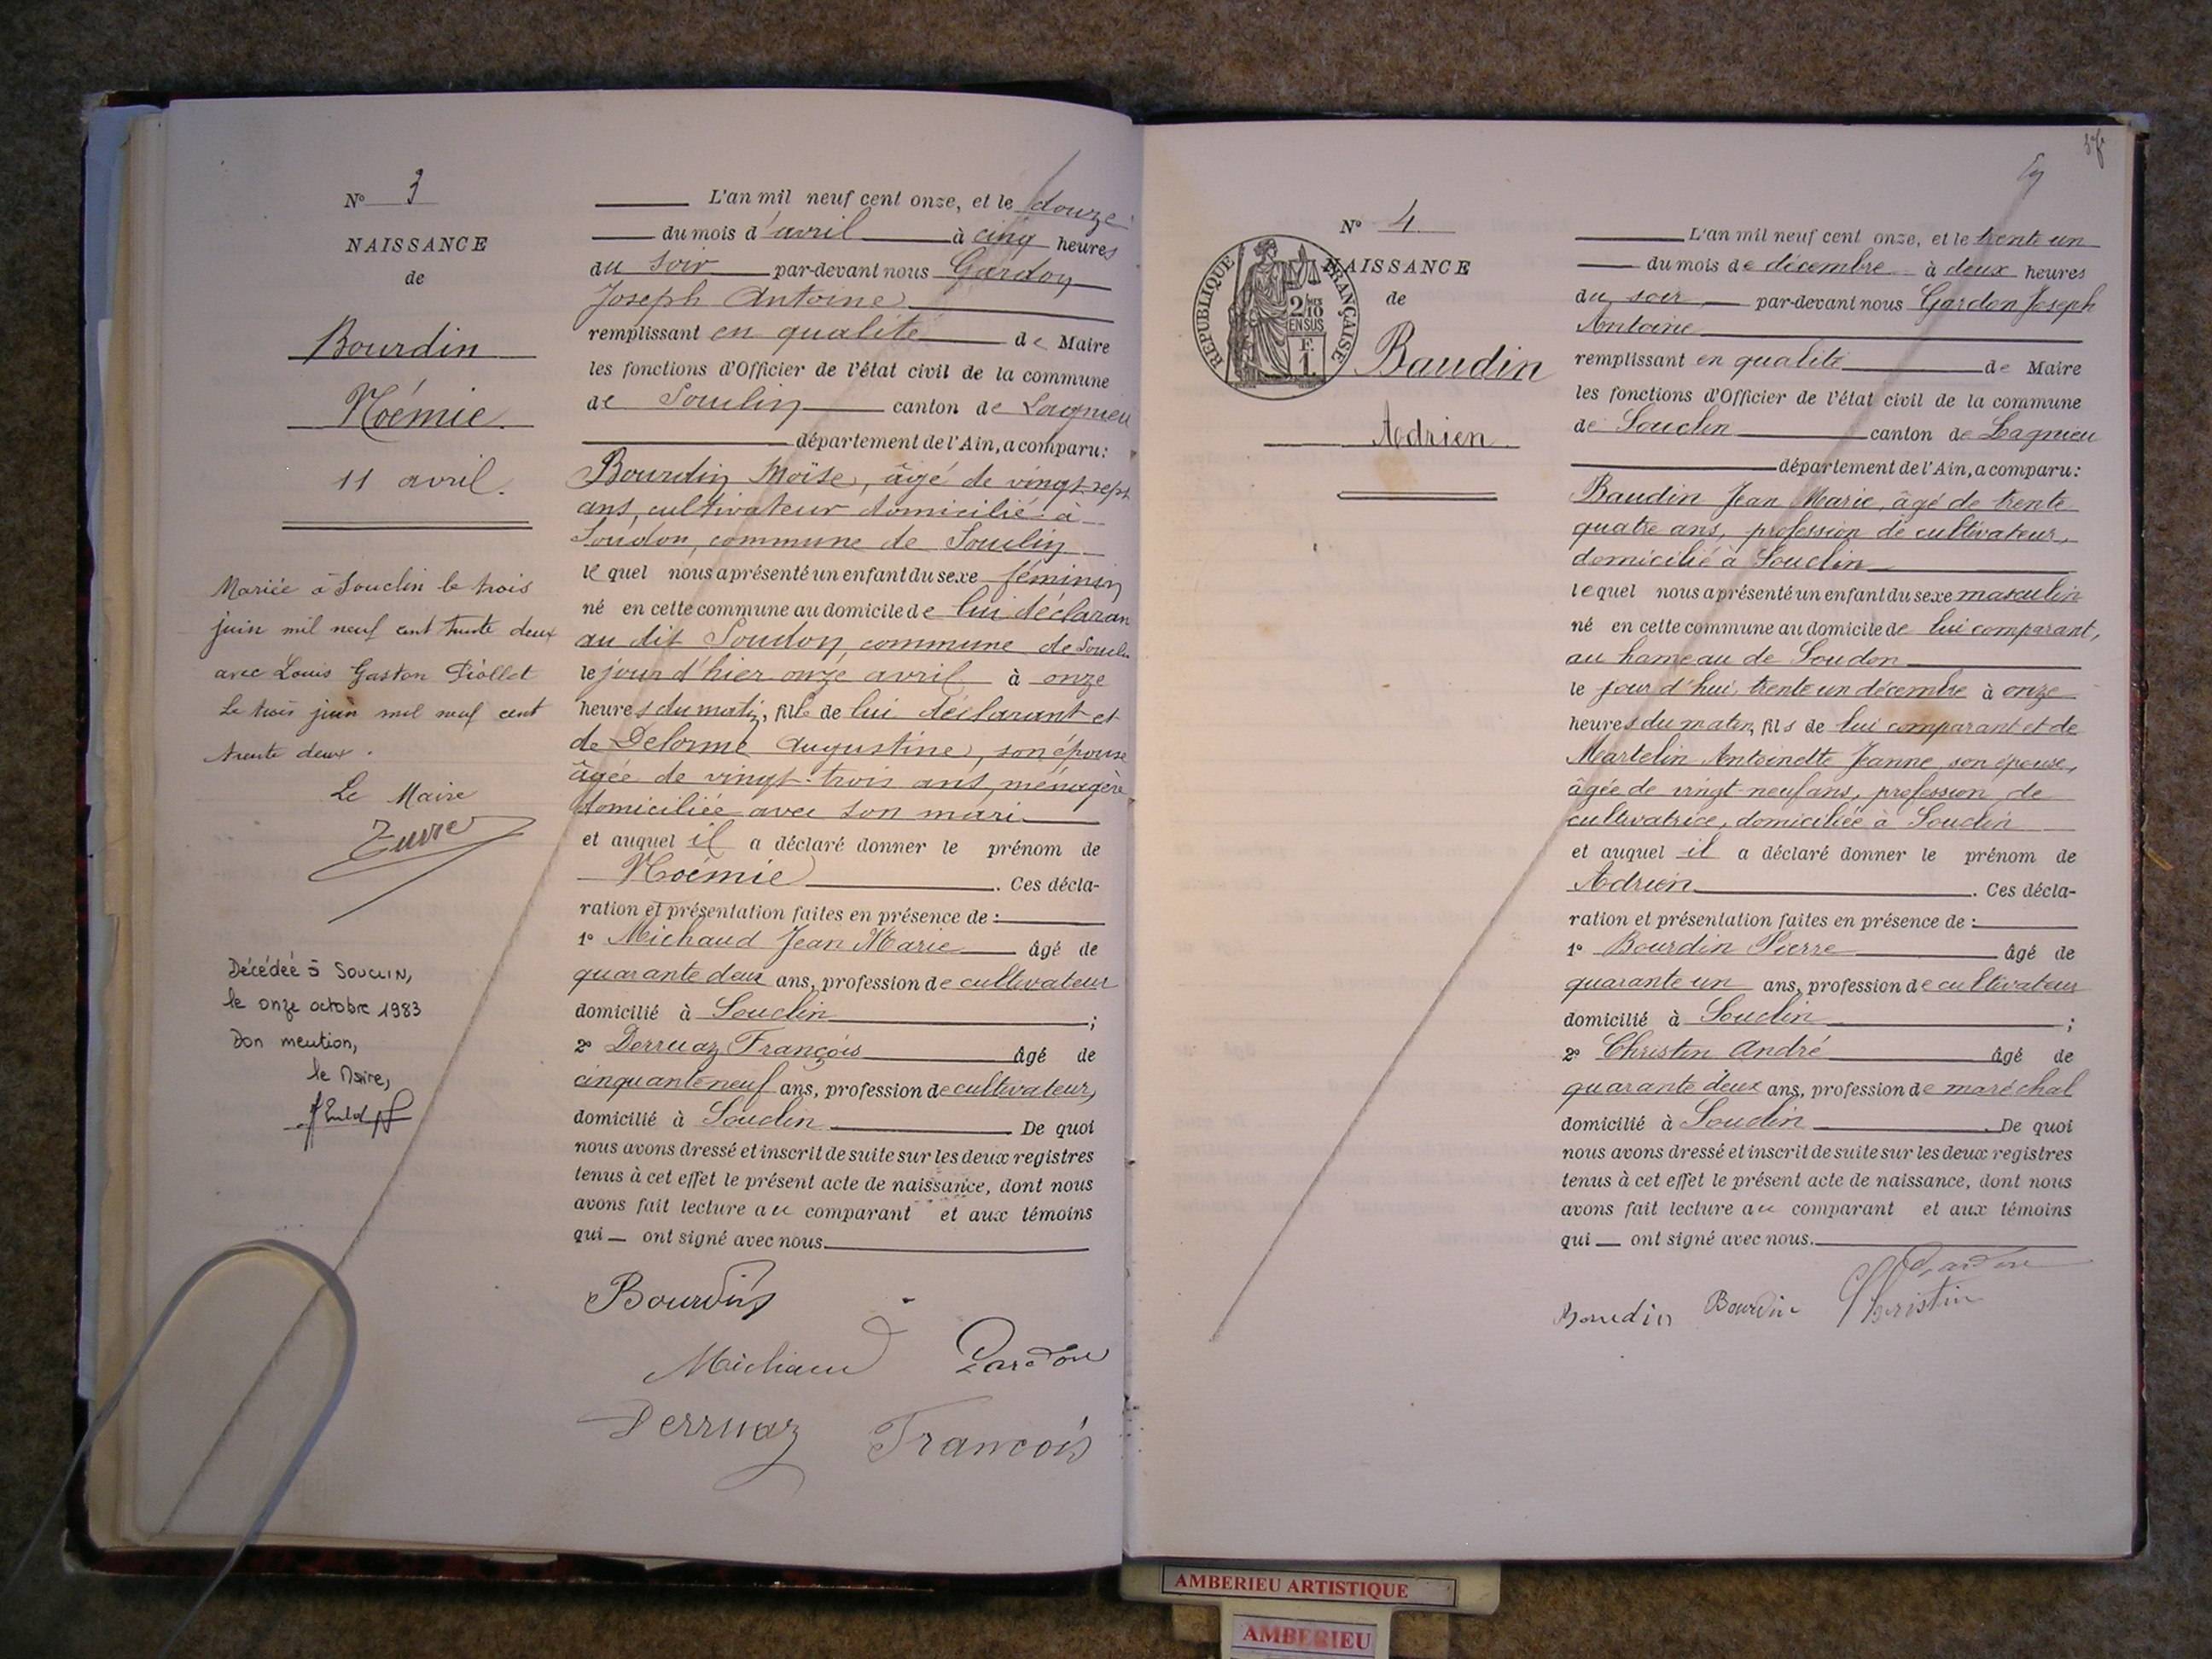 N° 3
NAISSANCE
de
Bourdin
Noémie
11 avril.
Mariée à Souclin le trois
juin mil neuf cent trente deux
avec Louis Gaston Piollet
Le trois juin mil neuf cent
trente deux.
Le Maire
Décédée à SOUCLIN,
le onze octobre 1983
Don mention,
le Maire,
L'an mil neuf cent onze, et le douze
du mois d'avril à cinq heures
du soir par-devant nous Gardon
Joseph Antoine
remplissant en qualité de Maire
les fonctions d'Officier de l'état civil de la commune
de Souclin canton de Lagnieu
département de l'Ain, a comparu:
Bourdin Moïse, âgé de vingt-sept
ans, cultivateur domicilié à
Soudon, commune de Souclin
lequel nous a présenté un enfant du sexe féminin
né en cette commune au domicile de lui déclaran
au dit Soudon, commune de Souclin
le jour d'hier onze avril à onze
heures du matin, fille de lui déclarant et
de Delorme Augustine, son épouse
âgée de vingt-trois ans, ménagère
domiciliée avec son mari
et auquel il a déclaré donner le prénom de
Noémie. Ces décla-
ration et présentation faites en présence de:
1° Michaud Jean Marie âgé de
quarante deux ans, profession de cultivateur
domicilié à Souclin;
2° Derruaz François âgé de
cinquante neuf ans, profession de cultivateur,
domicilié à Souclin De quoi
nous avons dressé et inscrit de suite sur les deux registres
tenus à cet effet le présent acte de naissance, dont nous
avons fait lecture au comparant et aux témoins
qui ont signé avec nous.
Bourdin
Michaud Gardon
Derruaz François
N° 4
NAISSANCE
de
RÉPUBLIQUE FRANÇAISE
2/10
EN SUS
F.
1.
Baudin
Adrien
L'an mil neuf cent onze, et le trente un
du mois de décembre à deux heures
du soir par-devant nous Gardon Joseph
Antoine
remplissant en qualité de Maire
les fonctions d'Officier de l'état civil de la commune
de Souclin canton de Lagnieu
département de l'Ain, a comparu:
Baudin Jean Marie, âgé de trente
quatre ans, profession de cultivateur,
domicilié à Souclin
lequel nous a présenté un enfant du sexe masculin
né en cette commune au domicile de lui comparant,
au hameau de Soudon
le jour d'hui, trente un décembre à onze
heures du matin, fils de lui comparant et de
Martelin Antoinette Jeanne, son épouse,
âgée de vingt-neuf ans, profession de
cultivatrice, domiciliée à Souclin
et auquel il a déclaré donner le prénom de
Adrien. Ces décla-
ration et présentation faites en présence de:
1° Bourdin Pierre âgé de
quarante un ans, profession de cultivateur
domicilié à Souclin;
2° Christin André âgé de
quarante deux ans, profession de maréchal
domicilié à Souclin. De quoi
nous avons dressé et inscrit de suite sur les deux registres
tenus à cet effet le présent acte de naissance, dont nous
avons fait lecture au comparant et aux témoins
qui ont signé avec nous.
Gardon
Baudin Bourdin Christin
AMBERIEU ARTISTIQUE
AMBERIEU